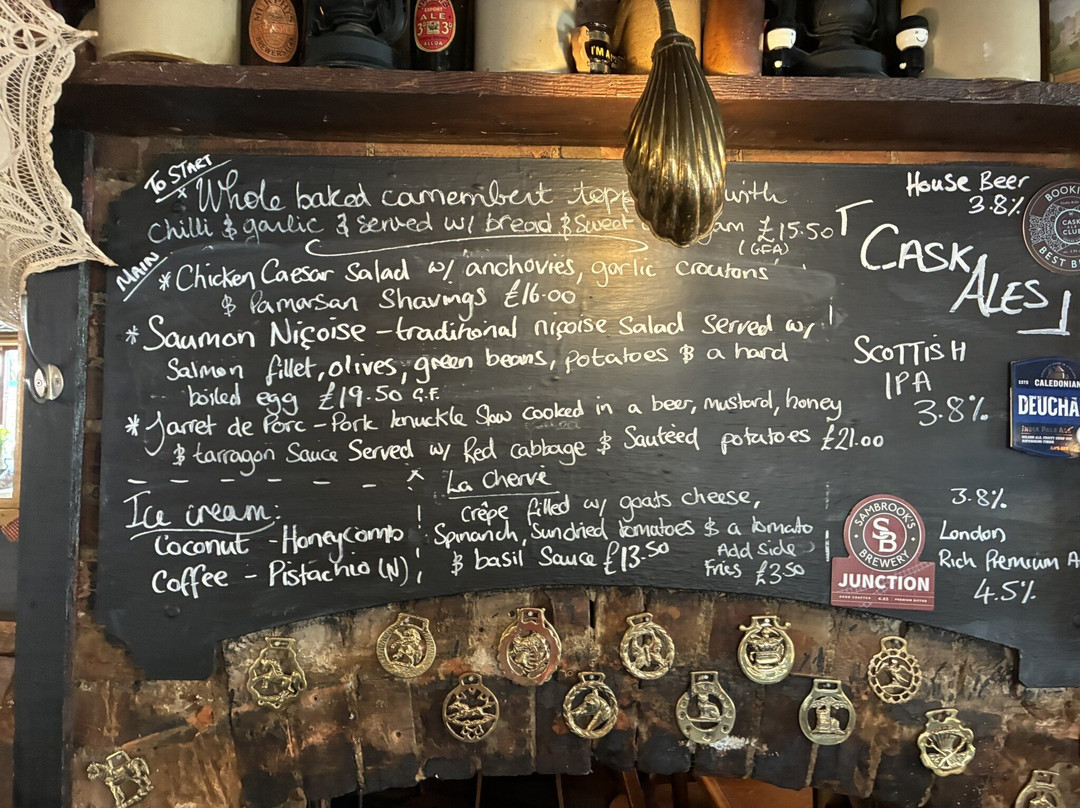 ALE
3.9
ALLOA
I'M A
To START
* Whole baked camembert topp with
Chilli & garlic & served w/ bread & Sweet jam £15.50
(GFA)
MAIN
* Chicken Caesar Salad w/ anchovies, garlic croutons
& Parmarsan Shavings £16.00
* Saumon Niçoise - traditional niçoise Salad Served w/
Salmon fillet, olives, green beans, potatoes & a hard
boiled egg £19.50 G.F.
* Jarret de Porc - Pork knuckle Slow cooked in a beer, mustard, honey
& tarragon Sauce Served w/ Red cabbage & Sautéed potatoes £21.00
Ice cream:
Coconut - Honeycomb
Coffee - Pistachio (N)
La Chervé
Crêpe filled w/ goats cheese,
Spinanch, Sundried tomatoes & a tomato
& basil Sauce £13.50
Add side
Fries £3.50
House Beer
3.8%
CASK
ALES
BEST B
SCOTTISH
IPA
3.8%
CALEDONIAN
DEUCHA
INDIA PALE ALE
3.8%
London
Rich Premium A
4.5%
SAMBROOK'S
SB
BREWERY
JUNCTION